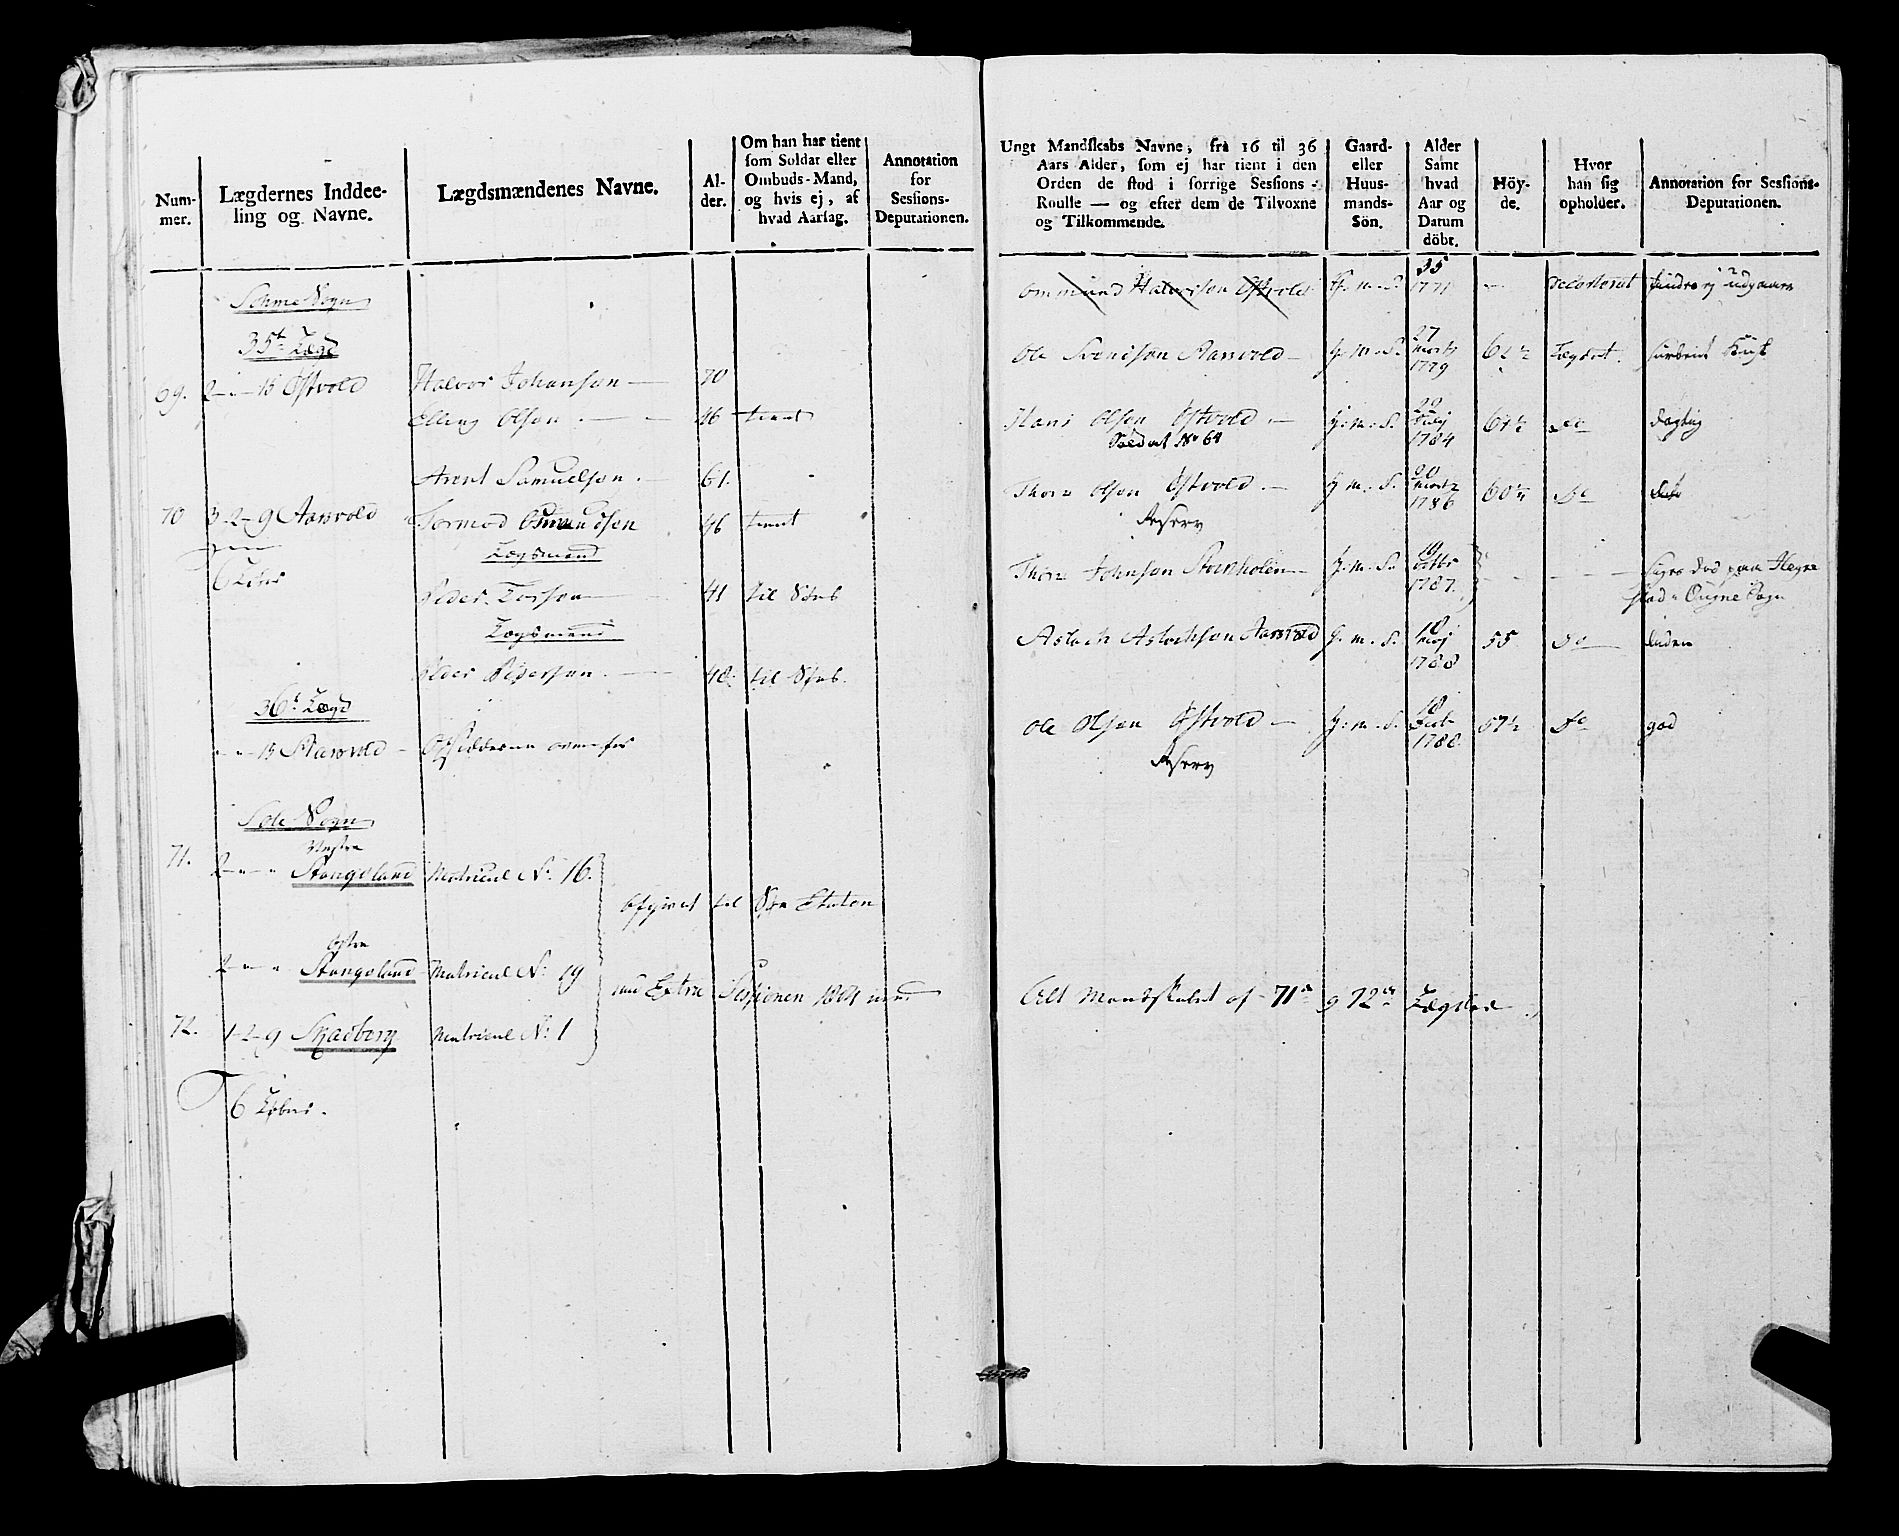 Num-
mer.
Lægdernes Inddee-
ling og Navne.
Lægdsmændenes Navne.
Al-
der.
Om han har tient
som Soldat eller
Ombuds-Mand,
og hvis ej, af
hvad Aarsag.
Annotation
for
Sessions-
Deputationen.
Sohme Sogn
35te Lægd
69. 2 - " - 15 Østvold Halvor Johansen 70
Elling Olsen 46 tient
Arent Samuelsen 61.
70 3-2-9 Aarsvold Tormod Osmundsen 46 tient
Lægsmand
6 Løbs
Peder Torsen 41 til Søes
Lægsmand
Peder Pedersen 48. til Søes.
36te Lægd
" - " - 15 Aarsvold Opsidderne
Sole Sogn
Vestre
71. 2 - " - " Stangeland Matricul No. 16.
afgivet til Søe Etaten
Østre
2 - " - " Stangeland Matricul No. 19
ved Extra Sessionen 1804
72. 1-2-9 Skadberg Matricul No. 1
6 Løbs.
Ungt Mandskabs Navne, fra 16 til 36
Aars Alder, som ej har tient i den
Orden de stod i forrige Sessions-
Roulle — og efter dem de Tilvoxne
og Tilkommende.
Gaard-
eller
Huus-
mands-
Sön.
Alder
Samt
hvad
Aar og
Datum
döbt.
Höy-
de.
Hvor
han sig
opholder.
Annotation for Sessions-
Deputationen.
Ommund Halvorsen Østvold G. m. S. 35 1771 - ej udgaaer
Ole Svendsen Aarsvold G. m. S. 27 Marts 1779 62½ Lægdet
Hans Olsen Østvold G. m. S. 22 July 1784 61½ Do dygtig
Soldat No 69
Thore Olsen Østvold G. m. S. 20 Marts 1786 60½ Do dito
Reserv
Thore Johnsen Storholen G. m. S. 19 Octbr 1787. siges død paa Høyne
stad i Ougne Sogn
Aslach Aslachsen Aarsvold G. m. S. 18 Maj 1788 55 Do liden
Ole Olsen Østvold G. m. S. 18 1788. 57½ Do god
Reserv
Alt Mandskabet af 71de og 72de Lægder